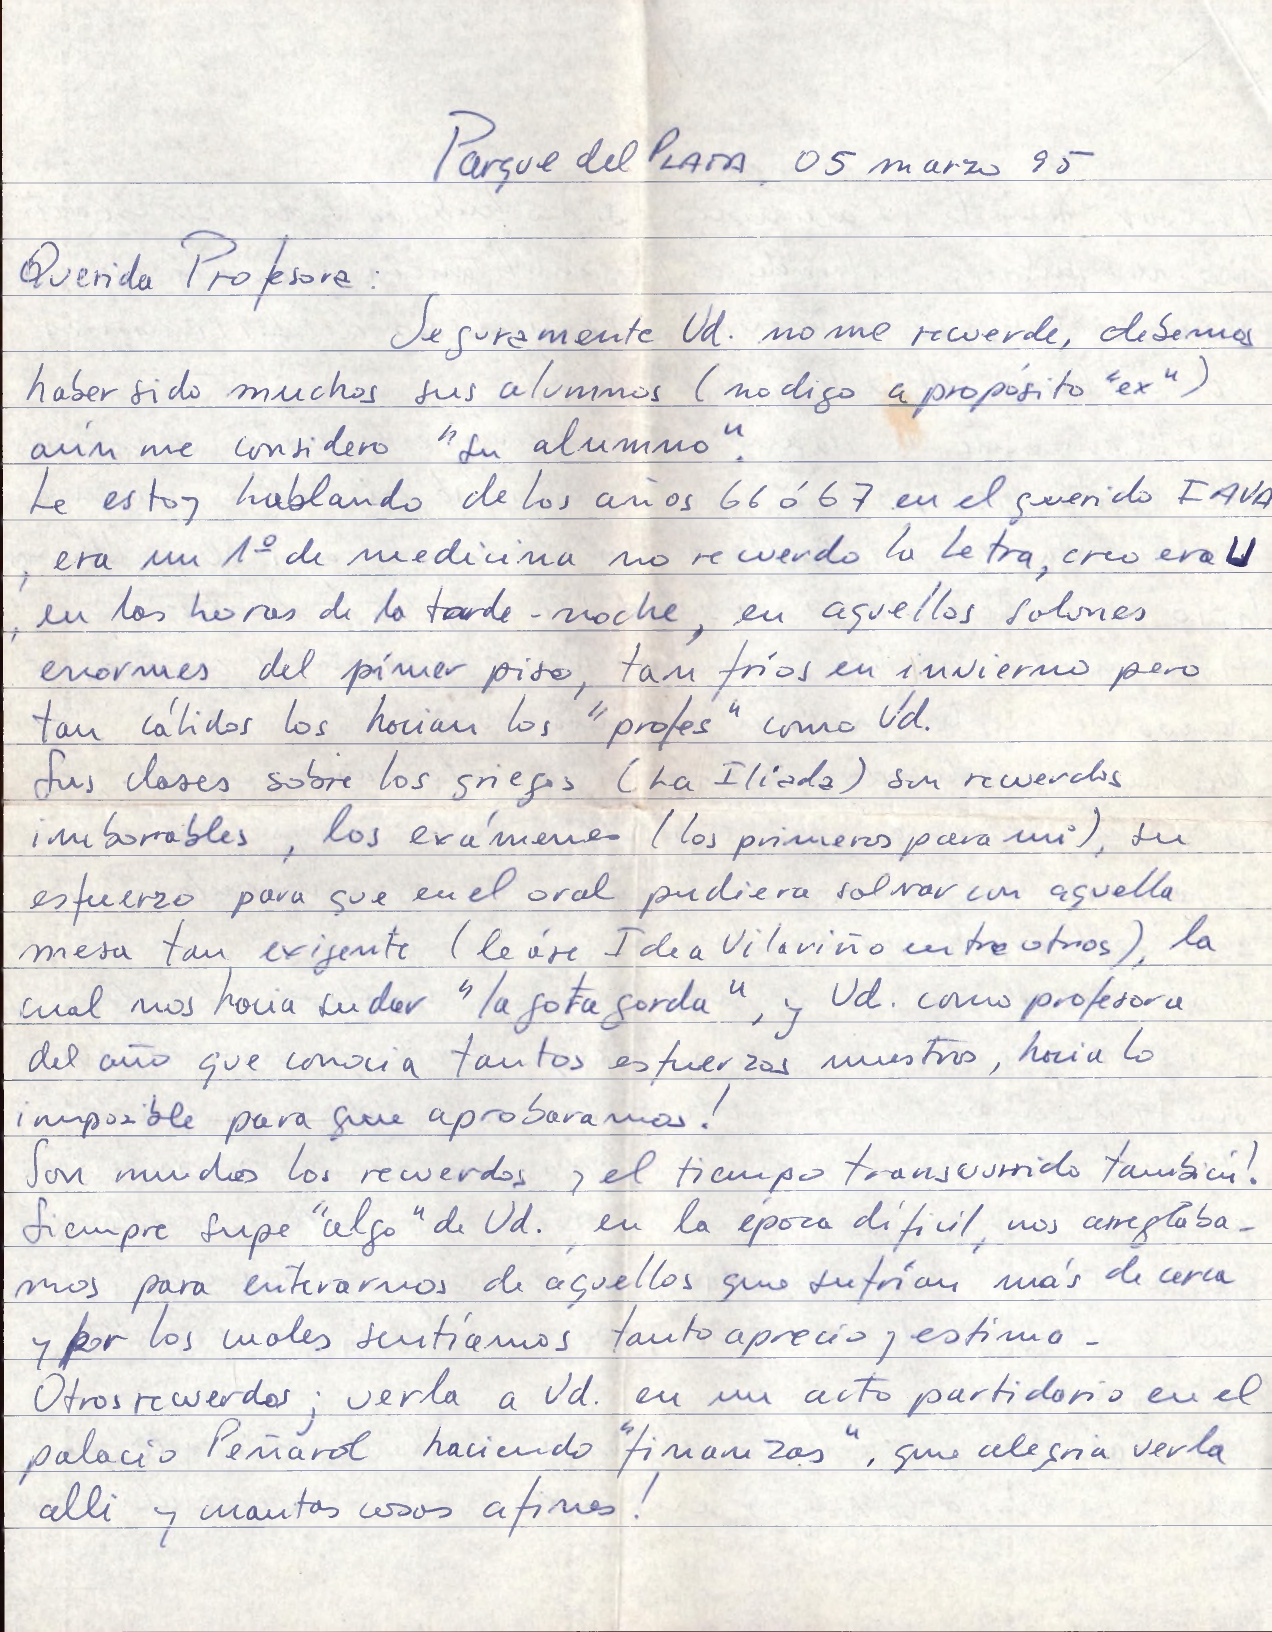 Parque del PLATA, 05 marzo 95
Querida Profesora:
Seguramente Ud. no me recuerde, debemos
haber sido muchos sus alumnos (no digo a propósito "ex")
aún me considero "su alumno".
Le estoy hablando de los años 66 ó 67 en el querido IAVA
, era un 1º de medicina no recuerdo la letra, creo era U
, en las horas de la tarde-noche, en aquellos salones
enormes del pimer piso, tan fríos en invierno pero
tan cálidos los hacian los "profes" como Ud.
Sus clases sobre los griegos (La Ilíada) son recuerdos
imborrables, los exámenes (los primeros para mi), su
esfuerzo para que en el oral pudiera salvar con aquella
mesa tan exigente (leáse Idea Vilariño entre otros), la
cual nos hacia sudar "la gota gorda", y Ud. como profesora
del año que conocia tantos esfuerzos nuestros, hacia lo
imposible para que aprobaramos!
Son muchos los recuerdos y el tiempo transcurrido también!
Siempre supe "algo" de Ud., en la época difícil, nos arreglába-
mos para enterarnos de aquellos que sufrían más de cerca
y por los cuales sentíamos tanto aprecio y estima-
Otros recuerdos; verla a Ud. en un acto partidario en el
palacio Peñarol haciendo "finanzas", que alegria verla
alli y cuantas cosas afines!